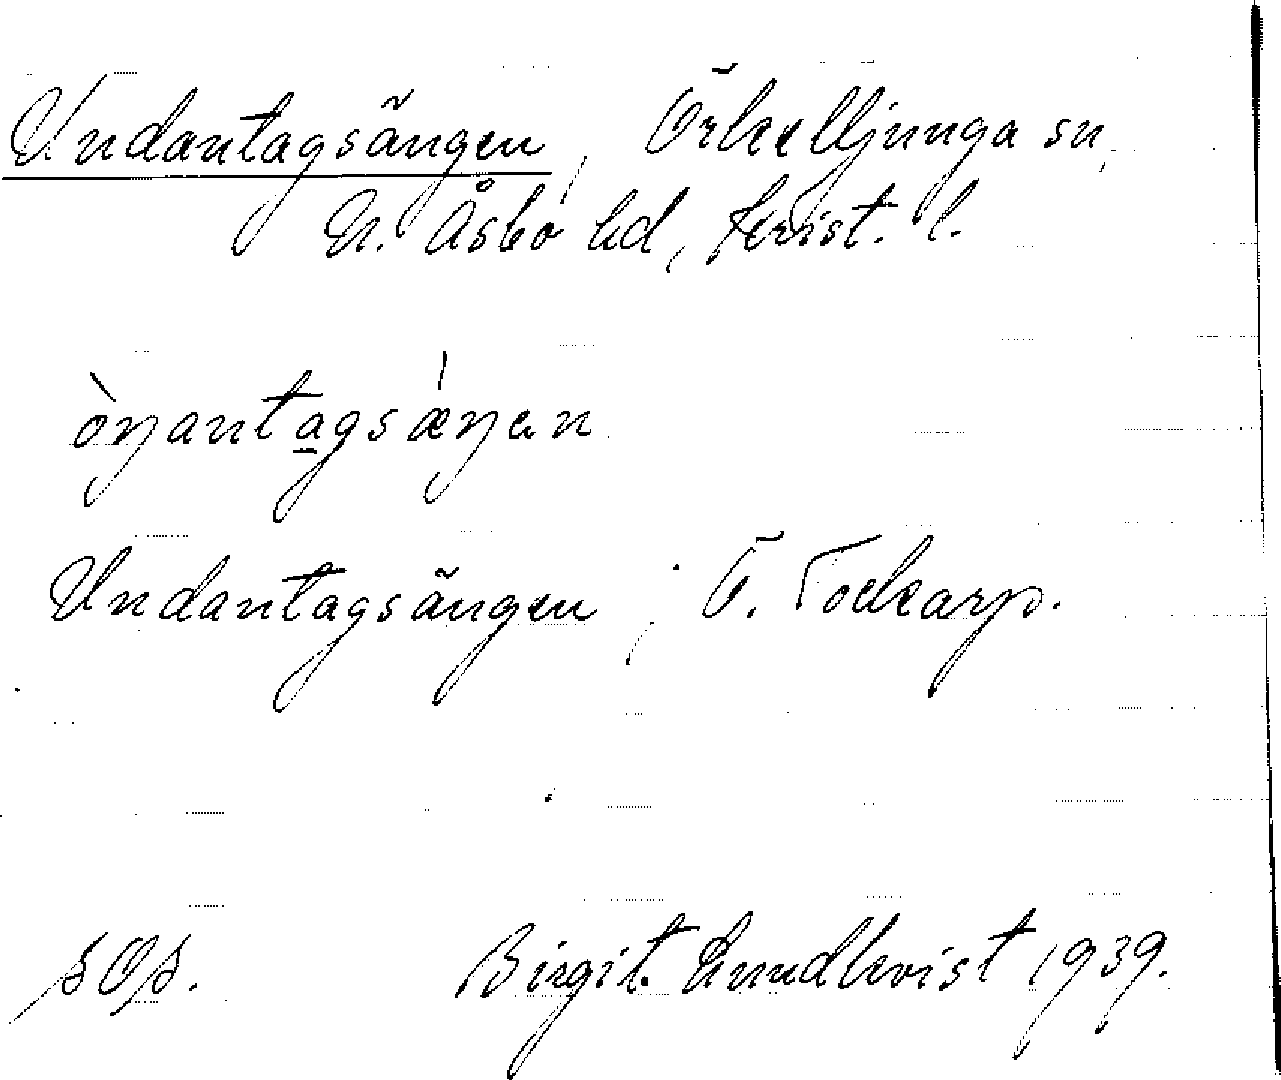 Undantagsängen, Örkelljunga sn,
N. Åsbo hd, Krist. l.
òŋantagsǽŋen
Undantagsängen, Ö. Tockarp.
Birgit Lundkvist 1939.